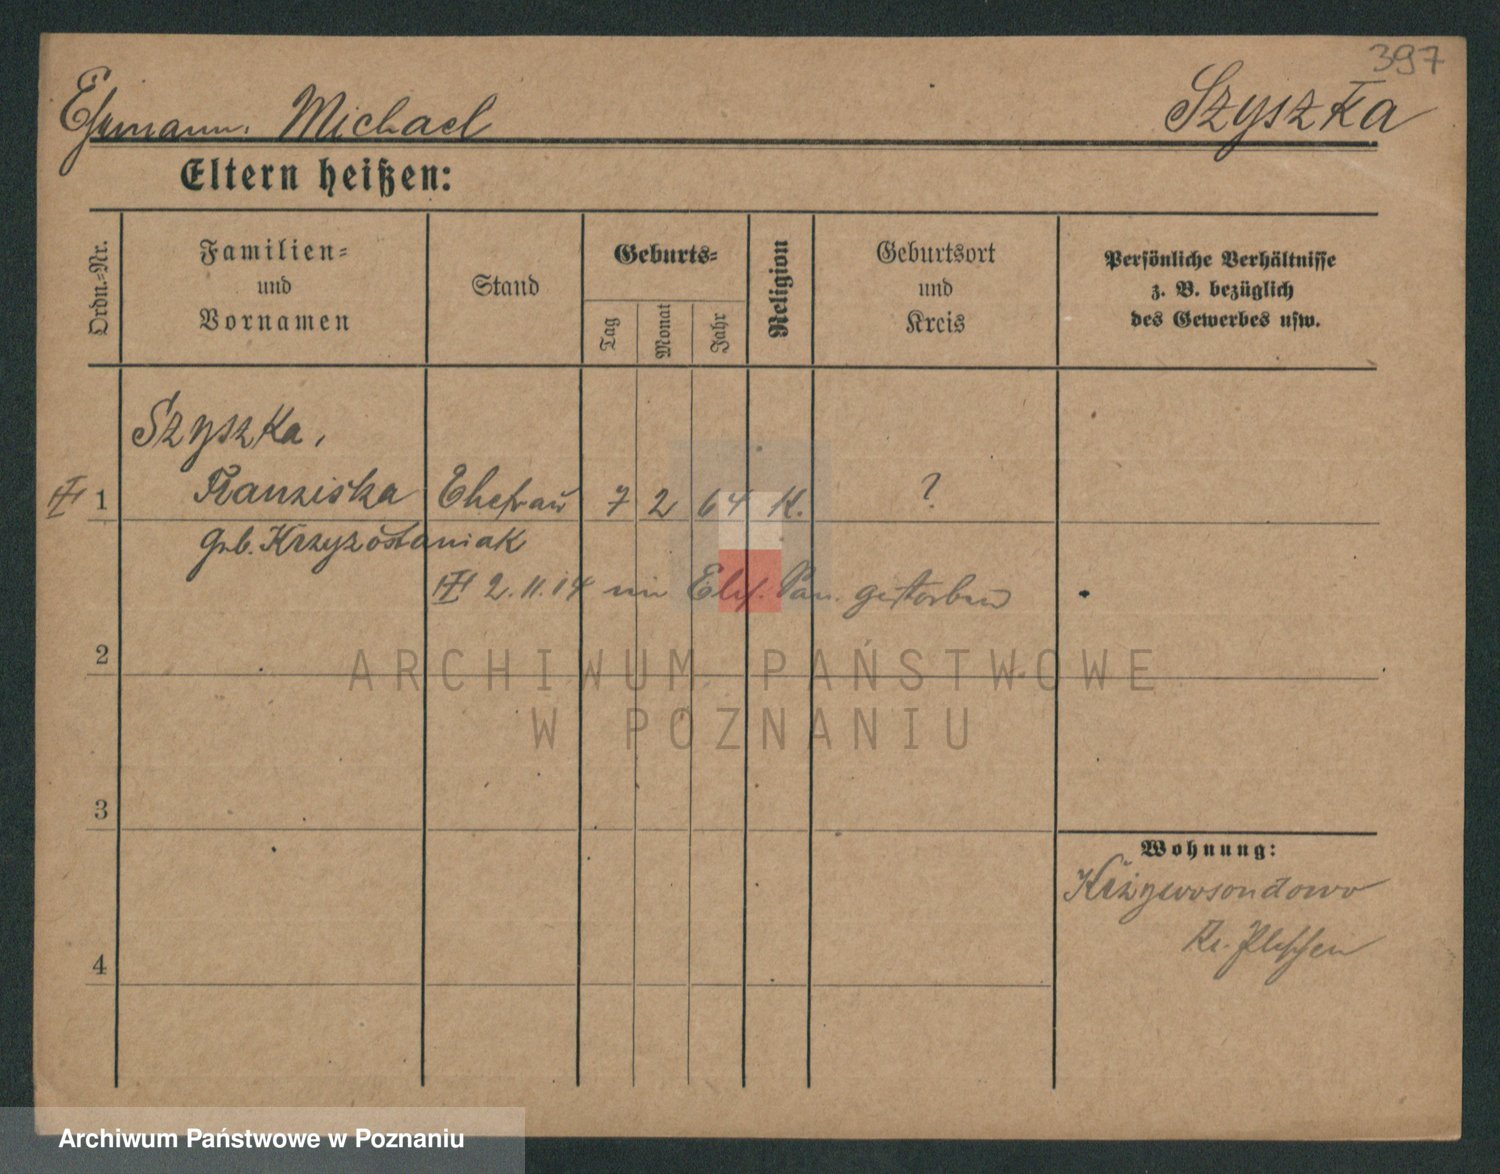 397
Ehemann: Michael Szyszka
Eltern heißen:
Ordn.-Nr.
Familien-
und
Vornamen
Stand
Geburts-
Tag
Monat
Jahr
Religion
Geburtsort
und
Kreis
Persönliche Verhältnisse
z. B. bezüglich
des Gewerbes usw.
Szyszka,
1 Franziska Ehefrau 7 2 64 K. ?
geb. Krzyzostaniak
2.11.14 im gestorben
2
3
4
Wohnung:
Kr. Pleschen
ARCHIWUM PAŃSTWOWE
W POZNANIU
Archiwum Państwowe w Poznaniu